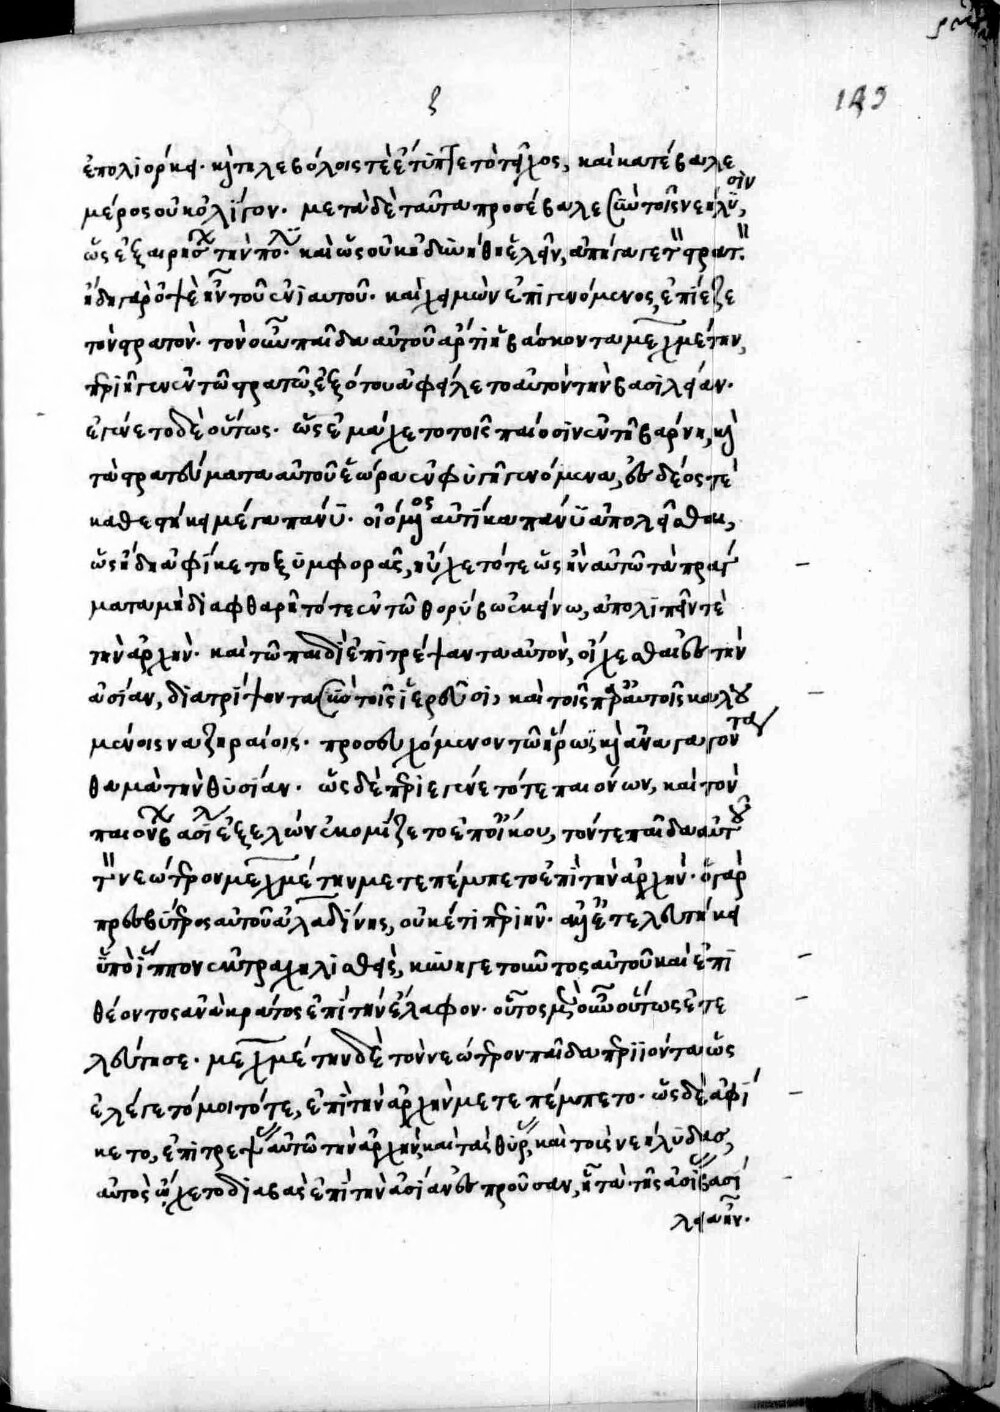 ξ
189
ἐπολιόρκει. καὶ τηλεβόλοις τὲ ἔτυπτε τὸ τεῖχος, καὶ κατέβαλε
μέρος οὐκ ὀλίγον. μετὰ δὲ ταῦτα προσέβαλε σὺν τοῖς νεήλυσιν,
ὡς ἐξαιρήσων τὴν πόλιν. καὶ ὡς οὐκ ἠδυνήθη ἑλεῖν, ἀπήγαγε τὸν στρατόν.
ἤδη γὰρ ὀψὲ ἦν τοῦ ἐνιαυτοῦ. καὶ χειμὼν ἐπιγενόμενος, ἐπίεζε
τὸν στρατόν. τὸν οὖν παῖδα αὐτοῦ ἄρτι ἡβάσκοντα μεχμέτην,
ἐν τῶ στρατῶ, ἐξ ὅτου ἀφείλετο αὐτὸν τὴν βασιλείαν.
ἐγένετο δὲ οὕτως. ὡς ἐμάχετο τοῖς παίοσιν ἐν τῆ βάρνη, καὶ
τὰ στρατεύματα αὐτοῦ ἑώρα ἐν φυγῆ γενόμενα, ἐς δέος τὲ
καθεστήκει μέγα πάνυ. οἰόμενος αὐτίκα πάνυ ἀπολεῖσθαι,
ὡς ἤδη ἀφίκετο ξυμφορᾶς, ηὔχετό τε ὡς ἦν αὐτῶ τὰ πράγ
ματα μὴ διαφθαρῆ τότε ἐν τῶ θορύβω ἐκείνω, ἀπολιπεῖν τὲ
τὴν ἀρχήν. καὶ τῶ παιδὶ ἐπιτρέψαντα αὐτὸν, οἴχεσθαι ἐς τὴν
ἀσίαν, διατρίψοντα σὺν τοῖς ἱερεῦσι, καὶ τοῖς παρ' αὐτοῖς καλου
μένοις ναζηραίοις. προσευχόμενον τῶ ἥρωϊ καὶ ἀνάγοντα
θαμὰ τὴν θυσίαν. ὡς δὲ περιεγένετό τε παιόνων, καὶ τὸν
παιόνων βασιλέα ἐξελὼν ἐκομίζετο ἐπ' οἴκου, τόν τε παῖδα αὐτοῦ
τὸν νεώτερον μεχμέτην μετεπέμπετο ἐπὶ τὴν ἀρχήν. ὁ γὰρ
πρεσβύτερος αὐτοῦ ἀλαδίνης, οὐκέτι περιῆν. ἀλλ' ἐτελευτήκει
ὑπὸ ἵππου ἐκτραχηλισθεὶς, κυνηγετοῦντος αὐτοῦ καὶ ἐπι
θέοντος ἀνὰ κράτος ἐπὶ τὴν ἔλαφον. οὗτος μὲν οὖν οὕτως ἐτε
λεύτησε. μεχμέτην δὲ τὸν νεώτερον παῖδα περιϊόντα ὡς
ἐλέγετό μοι τότε, ἐπὶ τὴν ἀρχὴν μετεπέμπετο. ὡς δὲ ἀφί
κετο, ἐπιτρέψας αὐτῶ τὴν ἀρχὴν, καὶ τὰς θύρας, καὶ τοὺς νεήλυδας,
αὐτὸς ᾤχετο διαβὰς ἐπὶ τὴν ἀσίαν ἐς προῦσαν, ᾗ τὰ τῆς ἀσίας βασί
λεια ἦν.